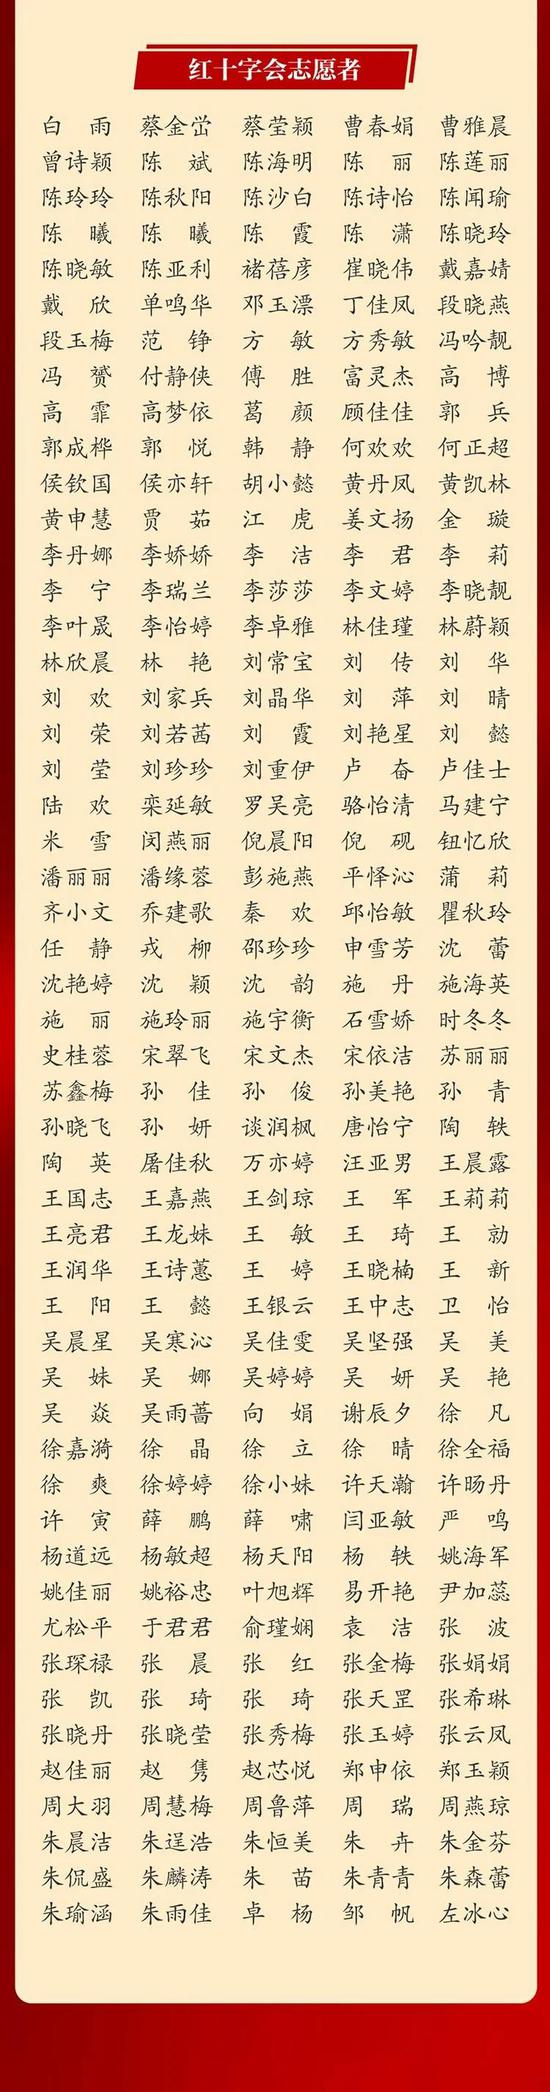 红十字会志愿者
白雨 蔡金峃 蔡莹颖 曹春娟 曹雅晨
曾诗颖 陈斌 陈海明 陈丽 陈莲丽
陈玲玲 陈秋阳 陈沙白 陈诗怡 陈闻瑜
陈曦 陈曦 陈霞 陈潇 陈晓玲
陈晓敏 陈亚利 褚蓓彦 崔晓伟 戴嘉婧
戴欣 单鸣华 邓玉漂 丁佳凤 段晓燕
段玉梅 范铮 方敏 方秀敏 冯吟靓
冯赟 付静侠 傅胜 富灵杰 高博
高霏 高梦依 葛颜 顾佳佳 郭兵
郭成桦 郭悦 韩静 何欢欢 何正超
侯钦国 侯亦轩 胡小懿 黄丹凤 黄凯林
黄申慧 贾茹 江虎 姜文扬 金璇
李丹娜 李娇娇 李洁 李君 李莉
李宁 李瑞兰 李莎莎 李文婷 李晓靓
李叶晟 李怡婷 李卓雅 林佳瑾 林蔚颖
林欣晨 林艳 刘常宝 刘传 刘华
刘欢 刘家兵 刘晶华 刘萍 刘晴
刘荣 刘若茜 刘霞 刘艳星 刘懿
刘莹 刘珍珍 刘重伊 卢奋 卢佳士
陆欢 栾延敏 罗吴亮 骆怡清 马建宁
米雪 闵燕丽 倪晨阳 倪砚 钮忆欣
潘丽丽 潘缘蓉 彭施燕 平怿沁 蒲莉
齐小文 乔建歌 秦欢 邱怡敏 瞿秋玲
任静 戎柳 邵珍珍 申雪芳 沈蕾
沈艳婷 沈颖 沈韵 施丹 施海英
施丽 施玲丽 施宇衡 石雪娇 时冬冬
史桂蓉 宋翠飞 宋文杰 宋依洁 苏丽丽
苏鑫梅 孙佳 孙俊 孙美艳 孙青
孙晓飞 孙妍 谈润枫 唐怡宁 陶轶
陶英 屠佳秋 万亦婷 汪亚男 王晨露
王国志 王嘉燕 王剑琼 王军 王莉莉
王亮君 王龙妹 王敏 王琦 王勍
王润华 王诗蕙 王婷 王晓楠 王新
王阳 王懿 王银云 王中志 卫怡
吴晨星 吴寒沁 吴佳雯 吴坚强 吴美
吴妹 吴娜 吴婷婷 吴妍 吴艳
吴焱 吴雨蔷 向娟 谢辰夕 徐凡
徐嘉漪 徐晶 徐立 徐晴 徐全福
徐爽 徐婷婷 徐小妹 许天瀚 许旸丹
许寅 薛鹏 薛啸 闫亚敏 严鸣
杨道远 杨敏超 杨天阳 杨轶 姚海军
姚佳丽 姚裕忠 叶旭辉 易开艳 尹加蕊
尤松平 于君君 俞瑾娴 袁洁 张波
张琛禄 张晨 张红 张金梅 张娟娟
张凯 张琦 张琦 张天罡 张希琳
张晓丹 张晓莹 张秀梅 张玉婷 张云凤
赵佳丽 赵隽 赵芯悦 郑申依 郑玉颖
周大羽 周慧梅 周鲁萍 周瑞 周燕琼
朱晨洁 朱逞浩 朱恒美 朱卉 朱金芬
朱侃盛 朱麟涛 朱苗 朱青青 朱森蕾
朱瑜涵 朱雨佳 卓杨 邹帆 左冰心